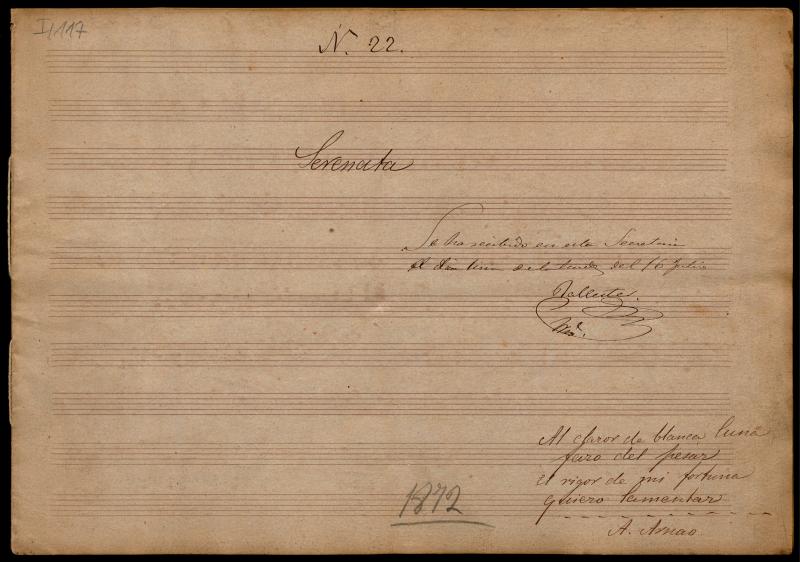 I/117
N. 22.
Serenata
Se ha recibido en esta Secretaria
el dia de la tarde del 16 Julio
Al claror de blanca luna
faro del pesar
el rigor de mi fortuna
quiero lamentar
A. Arnao
1872